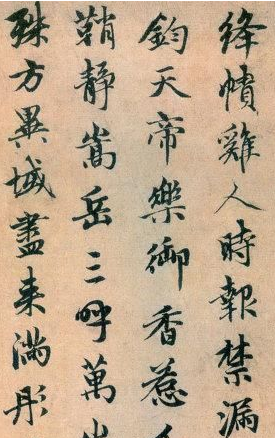 絳幘雞人時報禁漏
鈞天帝樂御香惹
鞘靜嵩岳三呼萬
殊方異域盡来滿彤